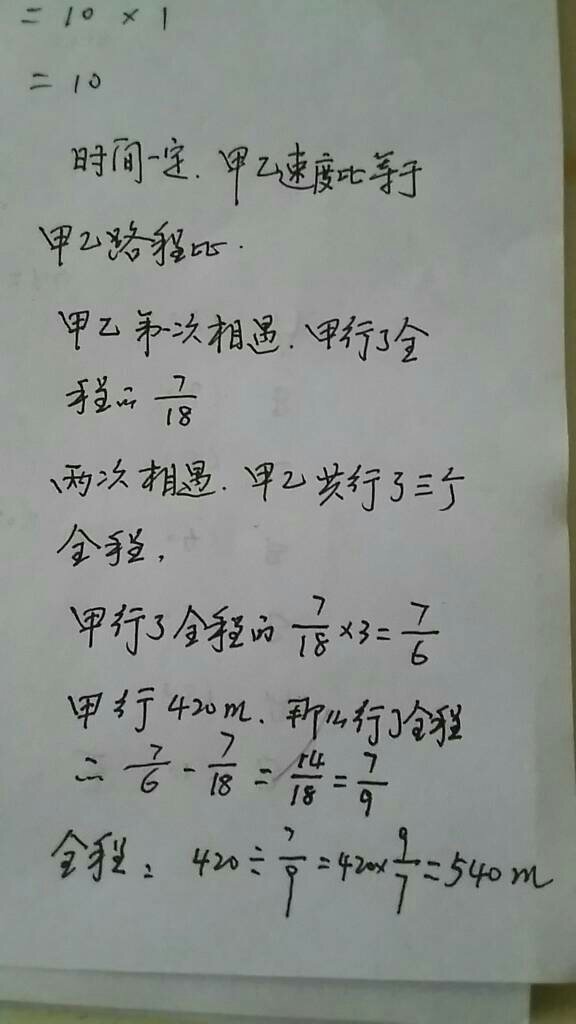 = 10 × 1
= 10
时间一定.甲乙速度比等于
甲乙路程比.
甲乙第一次相遇.甲行了全
程的 7/18
两次相遇.甲乙共行了三个
全程,
甲行了全程的 7/18 ×3 = 7/6
甲行420m.那么行了全程
的 7/6 - 7/18 = 14/18 = 7/9
全程: 420 ÷ 7/9 = 420× 9/7 = 540m